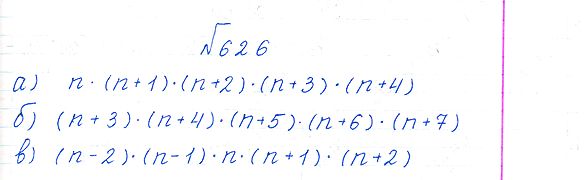 №626
а) n · (n+1)·(n+2)·(n+3)·(n+4)
б) (n+3)·(n+4)·(n+5)·(n+6)·(n+7)
в) (n-2)·(n-1)·n·(n+1)·(n+2)